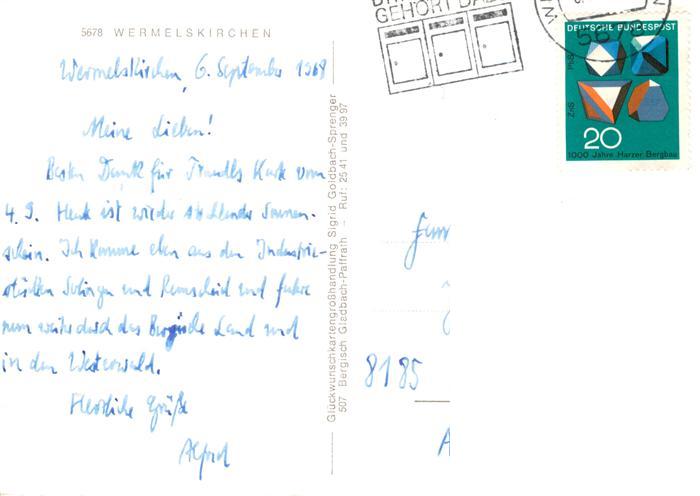 5678 WERMELSKIRCHEN
Wermelskirchen, 6. September 1968
Meine Lieben!
Besten Dank für Traudls Karte vom
4. 9. Heute ist wieder strahlender Sonnen-
schein. Ich komme eben aus den Industrie-
städten Solingen und Remscheid und fahre
nun weiter durch das Bergische Land und
in den Westerwald.
Herzliche Grüße
Alfred
Glückwunschkartengroßhandlung Sigrid Goldbach-Sprenger
507 Bergisch Gladbach-Paffrath - Ruf: 25 41 und 39 97
GEHÖRT
5678
DEUTSCHE BUNDESPOST
PbS
ZnS
20
1000 Jahre Harzer Bergbau
8185
A